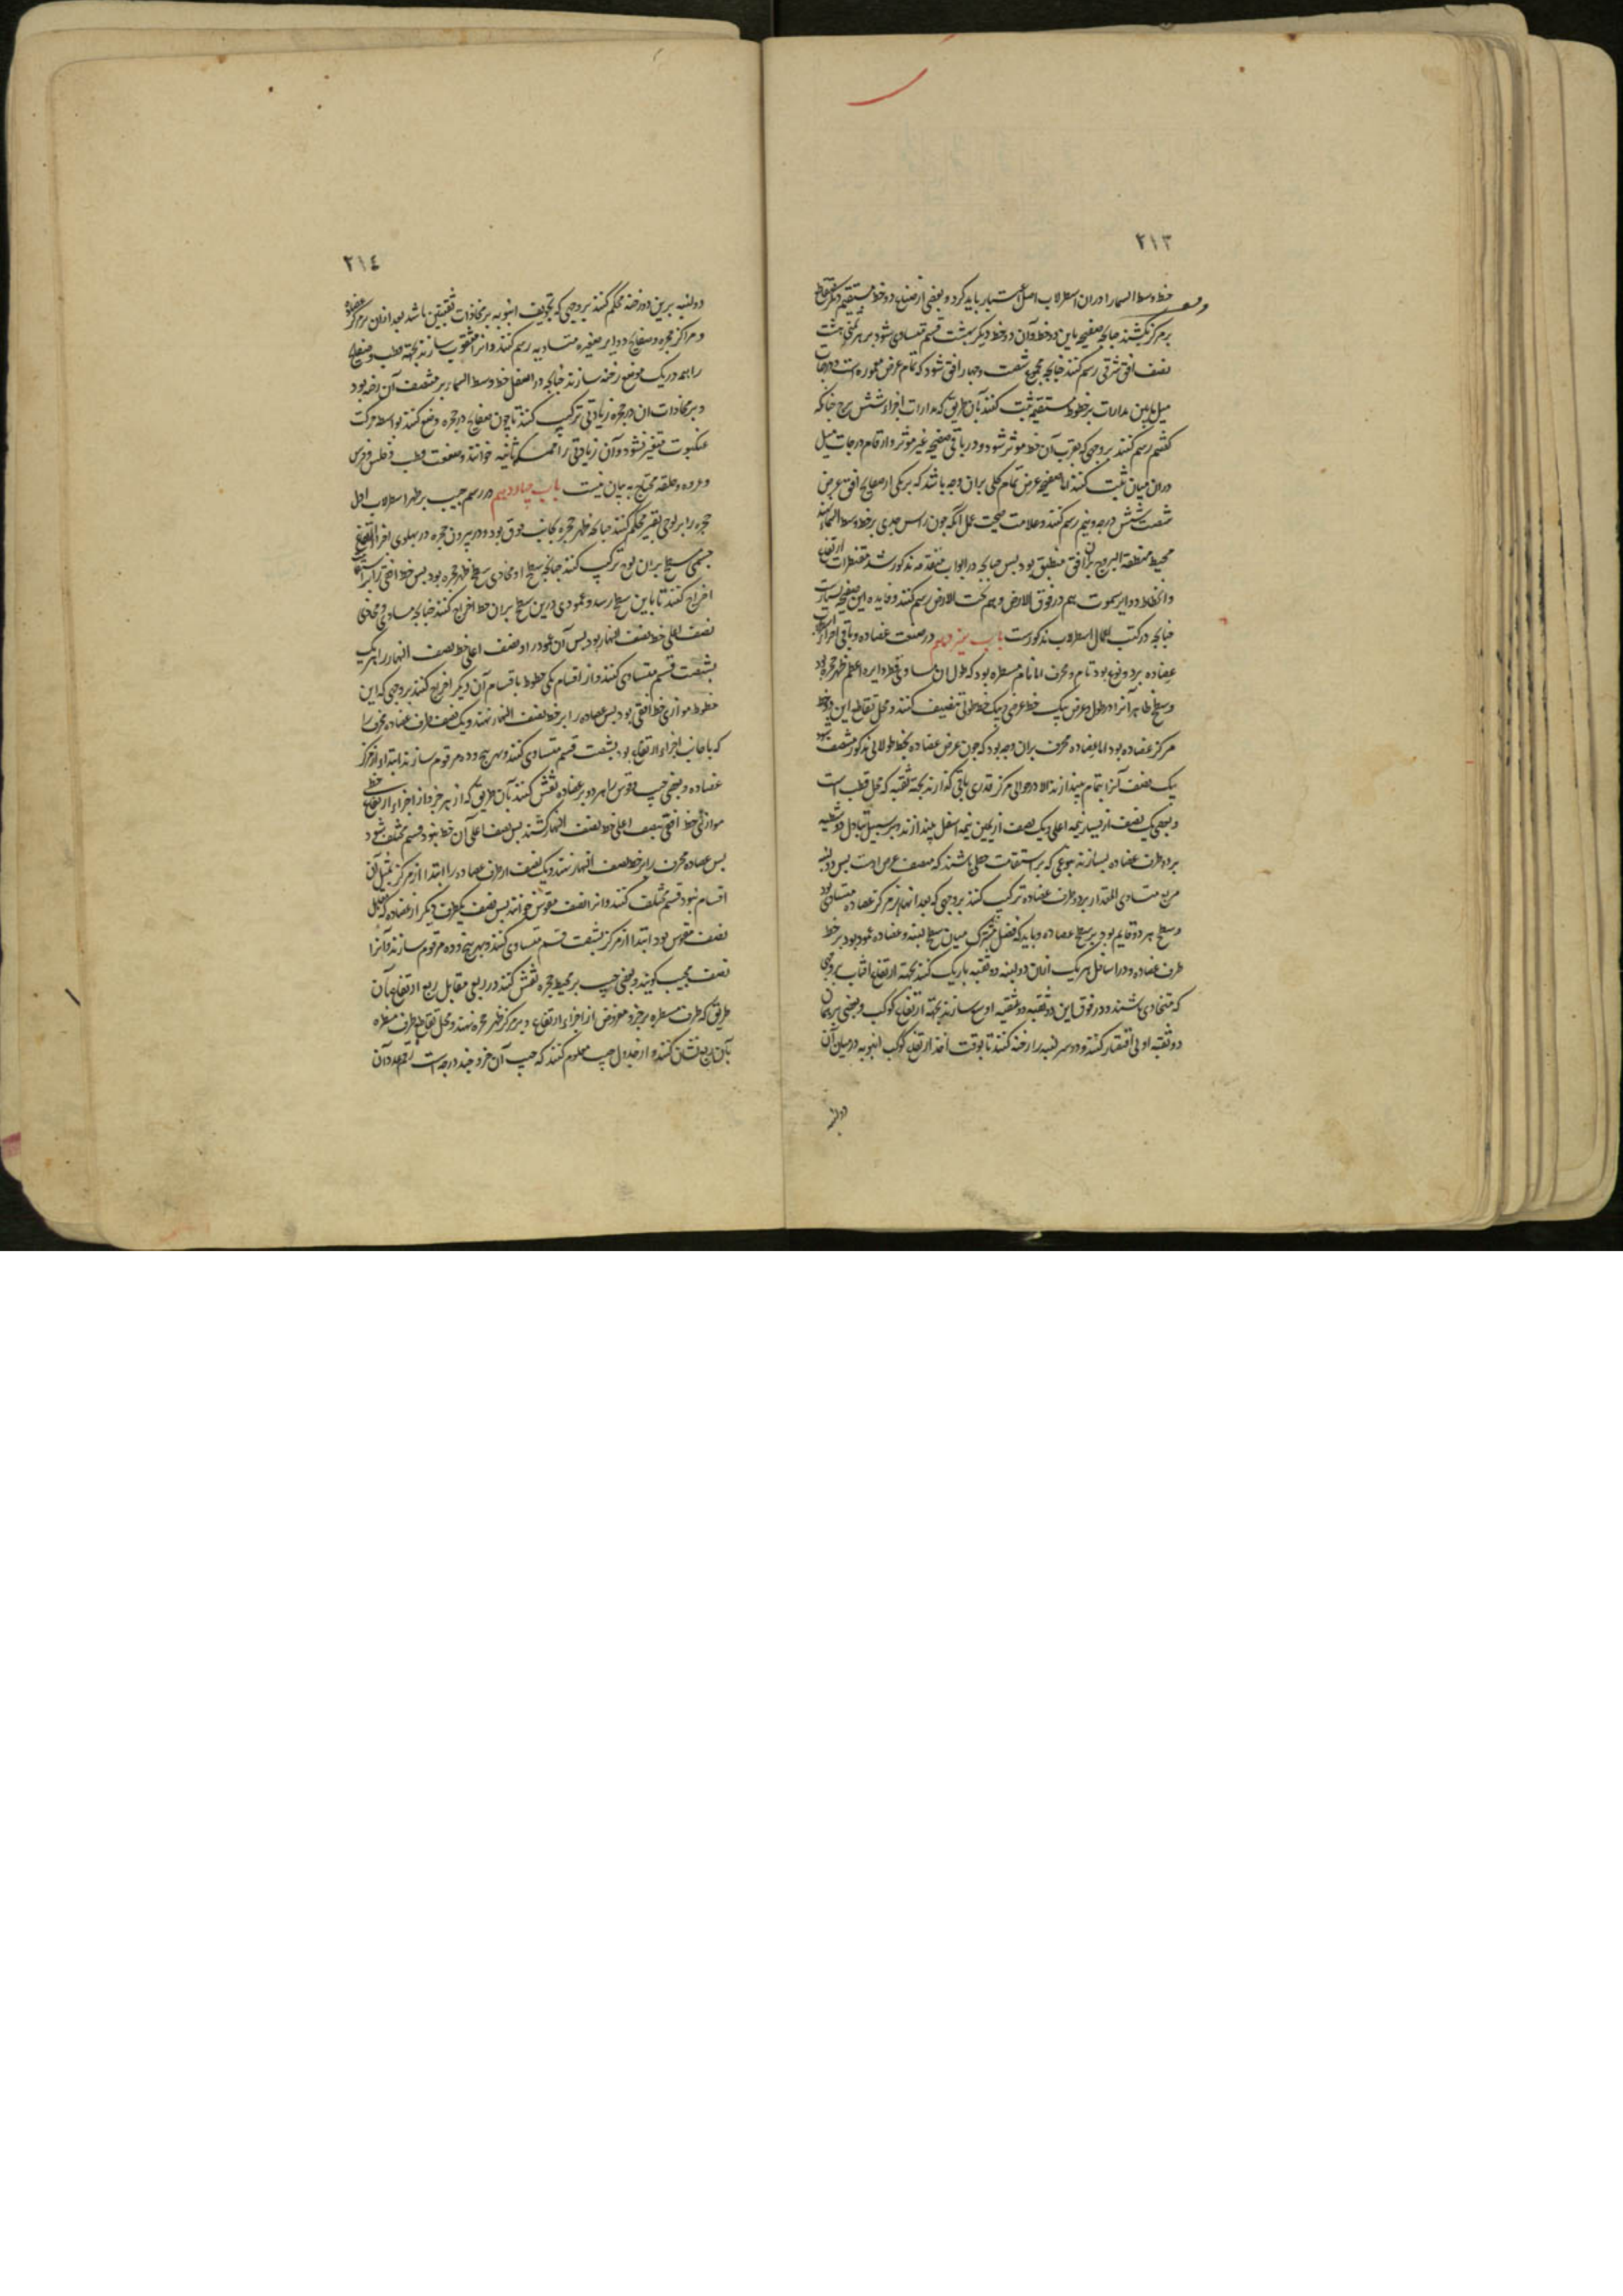 ٢١٣
خط وسط السما را دران اسطرلاب اصل اعتبار باید کرد و بعضی از صناع دو خط مستقیم دیگر متقاطع
بر مرکز بکشند چنانچه صفیحه باین دو خط و آن دو خط دیگر بهشت قسم متساوی شود بر هر ثمنی هشت
نصف افق شرقی رسم کنند چنانچه مجموع شصت و چهار افق شود که تمام عرض معموره است و درجات
میل مابین مدارات بر خطوط مستقیم ثبت کنند بآن طریق که مدارات اجزاء شش برج چنانکه
کفتیم رسم کنند بروجهی که بقرب آن خط موثر شود و در باقی صفیحه غیر موثر و ارقام درجات میل
دران میان ثبت کنند اما صفیحه عرض تمام کلی بران وجه باشد که بر یکی از صفایح افق عرض
شصت شش درجه و نیم رسم کنند و علامت صحت عمل آنکه چون راس جدی بر خط وسط السما باشد
محیط منطقه البروج بران افق منطبق بود پس چنانچه در ابواب متقدمه مذکور شد مقنطرات ارتفاع
و انحطاط و دوایر سموت هم در فوق الارض و هم تحت الارض رسم کنند و فایده این صفیحه بسیارست
چنانچه در کتب اعمال اسطرلاب مذکورست باب سیزدهم در صنعت عضاده و باقی اجزا اسطرلاب
عضاده بر دو نوع بود تام و محرف اما تام مسطره بود که طول ان مساوی قطر دایره اعظم ظهر حجره بود
و سطح ظاهر آنرا در طول و عرض بیک خط عرضی و بیک خط طولی تنصیف کنند و محل تقاطع این دو خط
مرکز عضاده بود اما عضاده محرف بران وجه بود که چون عرض عضاده بخط طولانی مذکور منصف شود
یک نصف آنرا بتمام بیندازند الا در حوالی مرکز قدری باقی گذارند بجهة ثقبه که محل قطب است
و بعضی یک نصف از یسار نیمه اعلی و یک نصف از یمین نیمه اسفل بیندازند و بر سبیل تبادل دو شظیه
بر دو طرف عضاده بسازند بنوعی که بر استقامت خطی باشند که منصف عرض است پس دو لبنه
مربع متساوی المقدار بر دو طرف عضاده ترکیب کنند بروجهی که بعد انها از مرکز عضاده متساوی بود
و سطح هر دو قایم بود بر سطح عضاده و باید که فصل مشترک میان سطح لبنه و عضاده عمود بود بر خط
طرف عضاده و در اسافل هر یک ازان دو لبنه دو ثقبه باریک کنند بجهة ارتفاع افتاب بروجهی
که متحاذی باشند و در فوق این دو ثقبه دو ثقبه اوسع سازند بجهة ارتفاع کوکب و بعضی بر همان
دو ثقبه اولی اقتصار کنند و دو سر لبنه را رخنه کنند تا بوقت اخذ ارتفاع کوکب انبوبه در میان آن
دو لبنه
٢١٤
دو لبنه برین دو رخنه محکم کنند بروجهی که تجویف انبوبه بر محاذات ثقبتین باشد بعد ازان بر مرکز عضاده
و مراکز حجره و صفایح دوایر صغیره متساویه رسم کنند و انرا مثقوب سازند بجهة قطب و صفایح
را همه در یک موضع رخنه سازند چنانچه در اسفل خط وسط السما بر منتصف آن رخنه بود
و بر محاذات ان در حجره زیادتی ترکیب کنند تا چون صفایح در حجره وضع کنند بواسطه حرکت
عنکبوت متغیر نشود و آن زیادتی را ممسکه ثانیه خوانند و صنعت قطب و فلس و فرس
و عروه و حلقه محتاج به بیان نیست باب چهاردهم در رسم جیب بر ظهر اسطرلاب اول
حجره را بر لوحی بقیر محکم کنند چنانچه ظهر حجره بجانب فوق بود و در بیرون حجره در پهلوی اجزا ارتفاع
جسمی مسطح بران لوح ترکیب کنند چنانچه سطح او محاذی سطح ظهر حجره بود پس خط افقی را براستقامت
اخراج کنند تا باین سطح رسد و عمودی درین سطح بران خط اخراج کنند چنانچه مساوی و محاذی
نصف اعلی خط نصف النهار بود پس آن عمود را و نصف اعلی خط نصف النهار را هر یک
بشصت قسم متساوی کنند و از اقسام یکی خطوط باقسام آن دیگر اخراج کنند بروجهی که این
خطوط موازی خط افقی بود پس عضاده را بر خط نصف النهار نهند و یک نصف طرف عضاده محرف را
که باجانب اجزاء ارتفاع بود بشصت قسم متساوی کنند و بهر پنج و ده مرقوم سازند ابتدا از مرکز
عضاده و بعضی جیب و قوس را هر دو بر عضاده نقش کنند بآن طریق که از هر جزو از اجزاء ارتفاع خطی
موازی خط افقی بنصف اعلی خط نصف النهار کشند پس نصف اعلی آن خط بنود قسم مختلف شود
پس عضاده محرف را بر خط نصف النهار نهند و یک نصف از طرف عضاده را ابتدا از مرکز بمثل آن
اقسام بنود قسم مختلف کنند و انرا نصف مقوس خوانند پس نصف یکطرف دیگر از عضاده که مقابل
نصف مقوس بود ابتدا از مرکز بشصت قسم متساوی کنند و بهر پنج و ده مرقوم سازند و آنرا
نصف مجیب گویند و بعضی جیب بر محیط حجره نقش کنند در ربعی مقابل ربع ارتفاع بآن
طریق که طرف مسطره بر جزو مفروض از اجزاء ارتفاع و بر مرکز ظهر حجره نهند و محل تقاطع طرف مسطره
بآن ربع نشان کنند و از جدول جیب معلوم کنند که جیب آن جزو چند درجه است رقم عدد آن